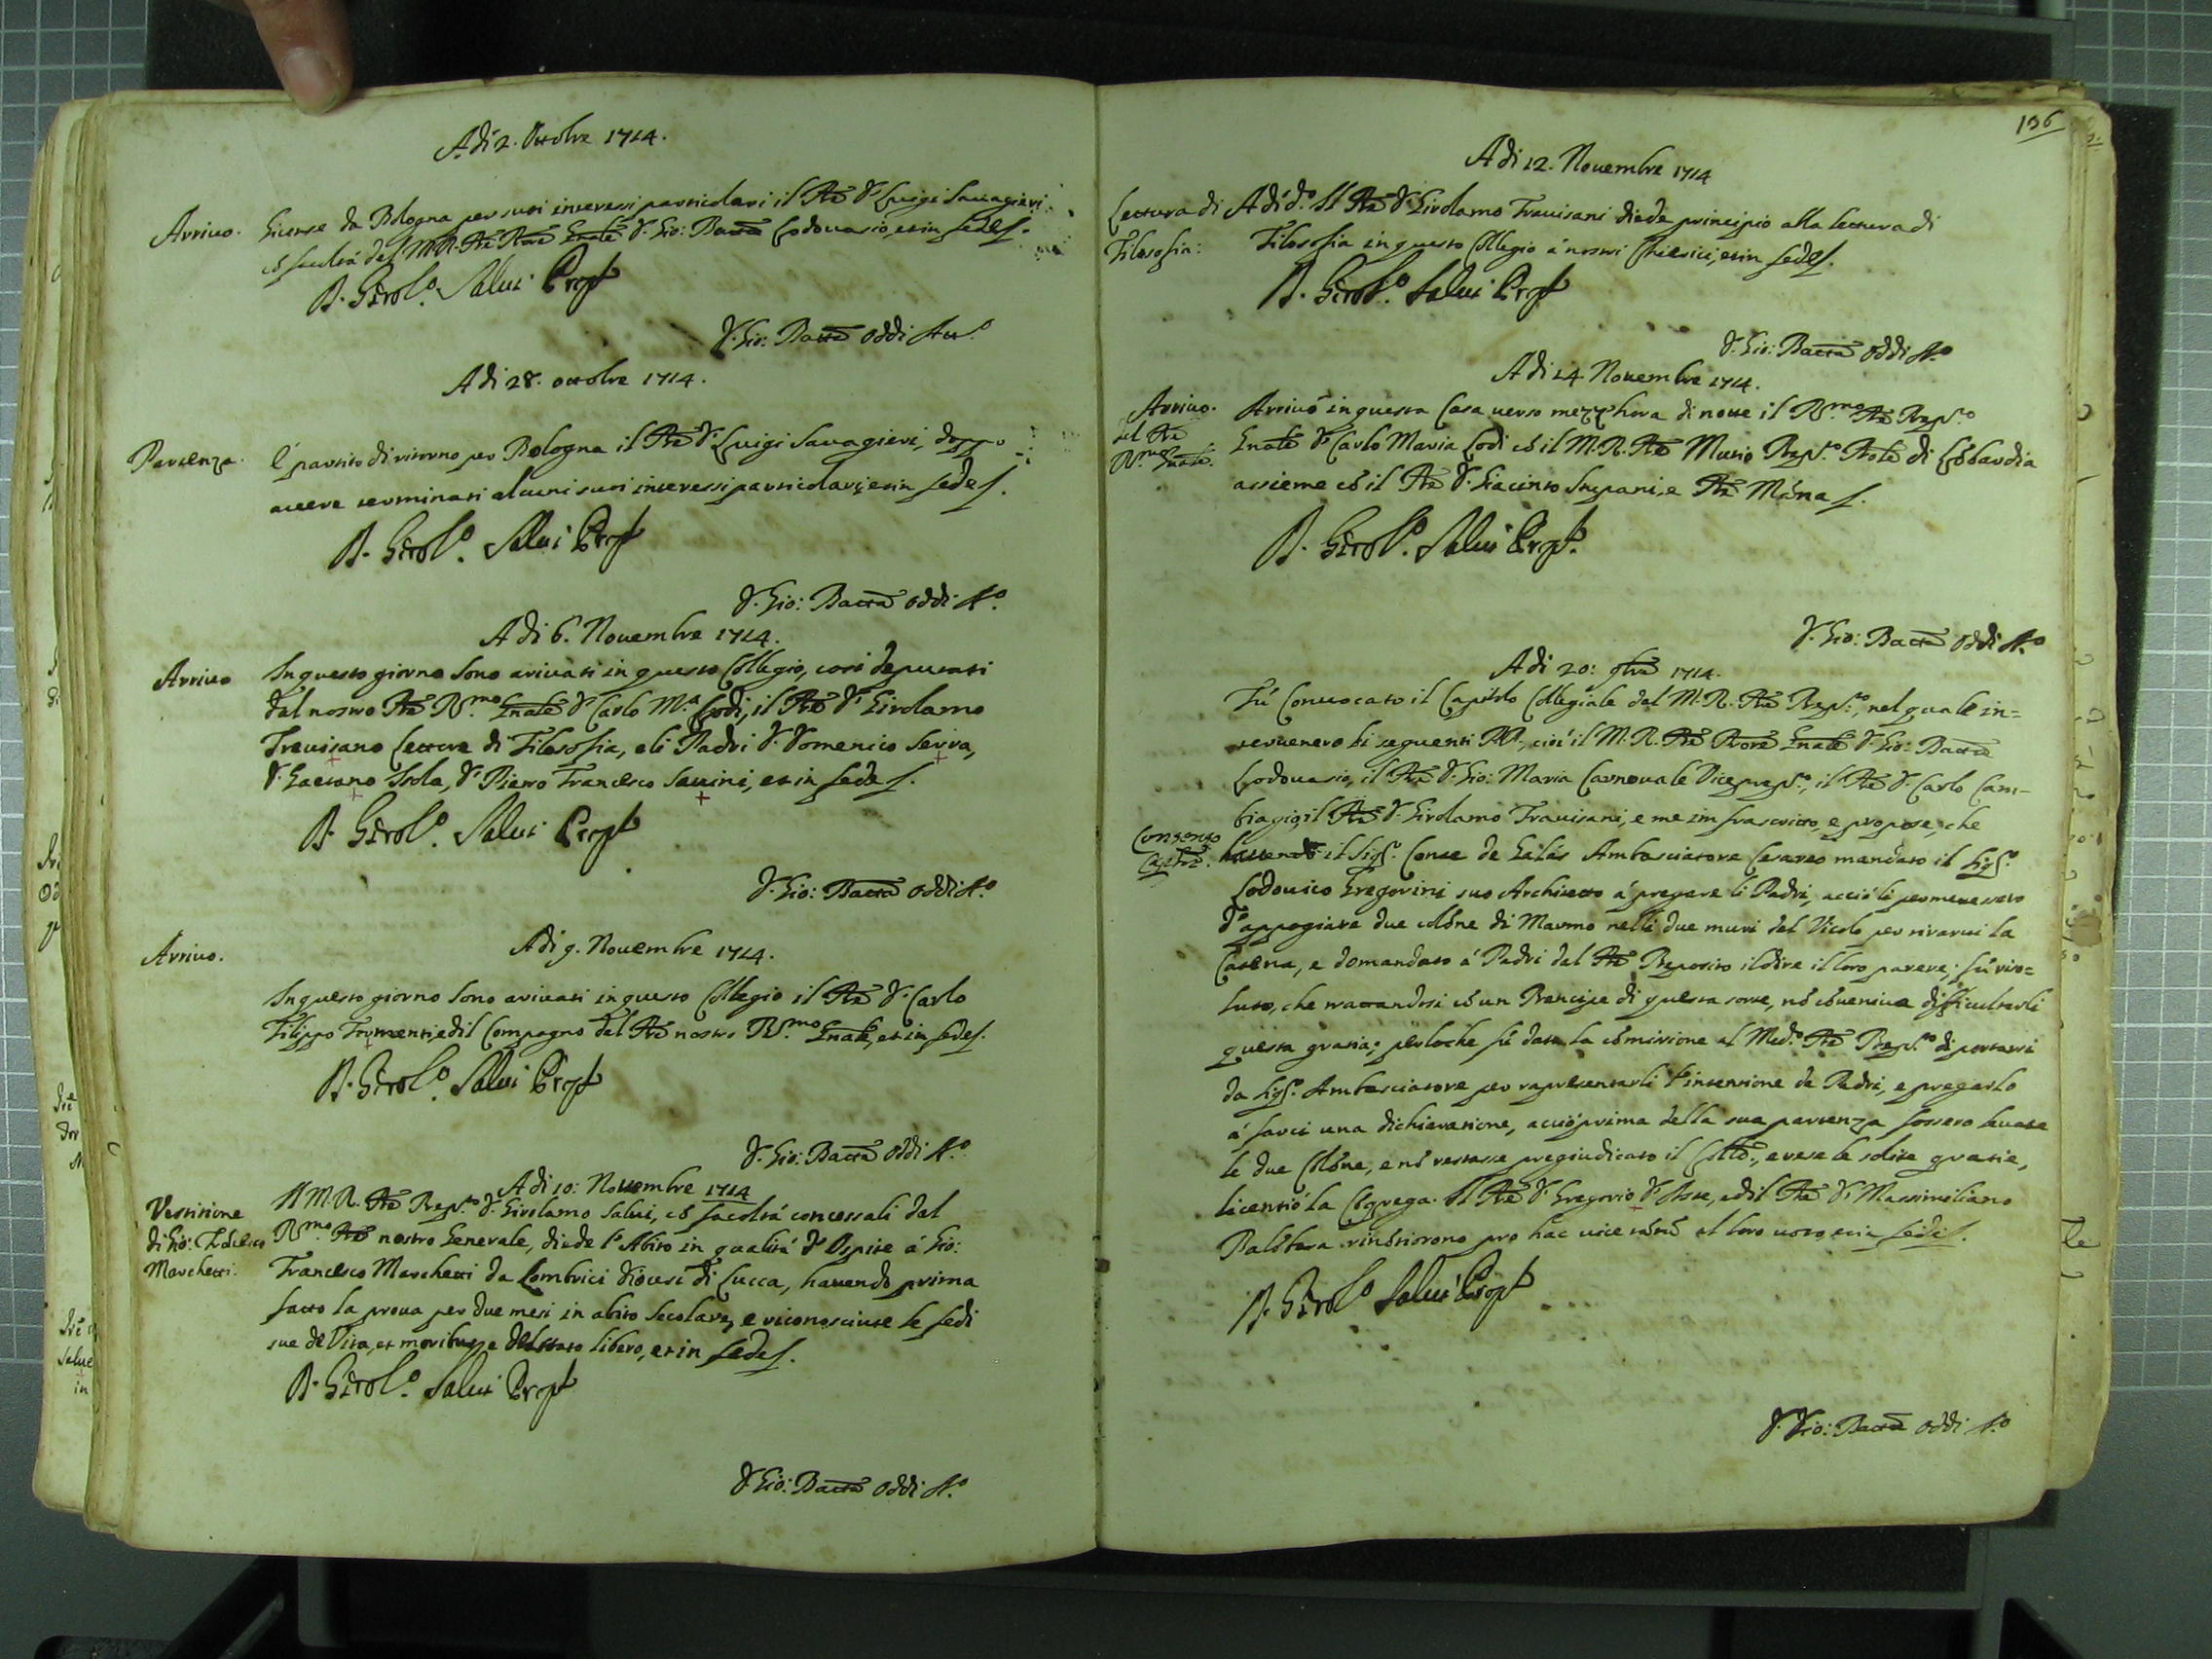 A dì 2. Ottobre 1714.
Arrivo. Giunse da Bologna per suoi interessi particolari il Pre D. Luigi Savagieri
cō facoltà del M.R. Pre Pore Gnāle D. Gio: Batta Lodovasio, et in fede f.
D. Girol.º Salvi Prep.º
D. Gio: Batta Oddi Att.º
A dì 28. ottobre 1714.
Partenza. È partito di ritorno per Bologna il Pre D. Luigi Savagieri, doppo
avere terminati alcuni suoi interessi particolari; et in fede f.
D. Girol.º Salvi Prep.º
D. Gio: Batta Oddi A.º
A dì 6. Novembre 1714.
Arrivo In questo giorno sono arivati in questo Collegio, cosi deputati
dal nostro Pre R.mo Gnāle D. Carlo M.a Lodi, il Pre D. Girolamo
Trevisano Lettore di Filosofia, e li Padri D. Domenico Seriva,
D. Gaetano Isola, D. Pietro Francesco Savini, et in fede f.
D. Girol.º Salvi Prep.º
D. Gio: Batta Oddi A.º
A dì 9. Novembre 1714.
Arrivo.
In questo giorno sono arivati in questo Collegio il Pre D. Carlo
Filippo Trumenti, ed il Compagno del Pre nostro R.mo Gnāle, et in fede f.
D. Girol.º Salvi Prep.º
D. Gio: Batta Oddi A.º
A dì 10: Novembre 1714
Vestitione
di Gio: Frācesco
Marchetti.
Il M.R. Pre Prep.to D. Girolamo Salvi, cō facoltà concessali dal
R.mo Pre nostro Generale, diede l'Abito in qualità d'Ospite à Gio:
Francesco Marchetti da Lombrici diocesi di Lucca, havendo prima
fatto la prova per due mesi in abito secolare, e riconosciute le fedi
sue de Vita, et moribus, e dello stato libero, et in fede f.
D. Girol.º Salvi Prep.º
D. Gio: Batta Oddi A.º
136
A dì 12. Novembre 1714
Lettura di
Filosofia:
A dì d.º Il Pre D. Girolamo Travisani diede principio alla lettura di
Filosofia in questo Collegio à nostri Chierici, et in fede f.
D. Girol.º Salvi Prep.º
D. Gio: Batta Oddi A.º
A dì 14 Novembre 1714.
Arrivo.
del Pre
R.mo Gnāle.
Arrivò in questa Casa verso mezz'hora di notte il R.mo Pre Prep.to
Gnāle D. Carlo Maria Lodi cō il M.R. Pre Mutio Prep.to Prole di Lōbardia
assieme cō il Pre D. Giacinto Stepani, e Pre Mōna f.
D. Girol.º Salvi Prep.º
D. Gio: Batta Oddi A.º
A dì 20: 9bre 1714.
Fù Convocato il Capitolo Collegiale dal M.R. Pre Prep.to, nel quale in=
tervenero li seguenti PP., cioè il M.R. Pre Pore Gnāle D. Gio: Batta
Lodovasio, il Pre D. Gio: Maria Carnovale Viceprep.to, il Pre D. Carlo Cam-
biagi, il Pre D. Girolamo Travisani, e me infrascritto, e propose, che
Consenso
Caplre.
havendo il Sig.r Conte de Galàs Ambasciatore Cesareo mandato il Sig.r
Lodovico Gregorini suo Architetto à pregare li Padri, acciò li permettessero
d'appogiare due colōne di Marmo nelli due muri del Vicolo per tirarvi la
Catena, e domandato à Padri dal Pre Preposito il dire il loro parere; fù riso=
luto, che trattandosi cō un Prencipe di questa sorte, nō cōveniva difficultarli
questa gratia; perloche fù data la cōmisione al Med.º Pre Prep.to di portarsi
da Sig.r Ambasciatore per rapresentarli l'intentione de Padri, e pregarlo
à farci una dichiaratione, acciò prima della sua partenza fossero levate
le due Colōne, e nō restasse pregiudicato il Colleo., e rese le solite gratie,
licentiò la Cōgrega. Il Pre D. Gregorio d'Asse, ed il Pre D. Massimiliano
Balōbara rinōtiorono pro hac vice al loro voto, et in fede f.
D. Girol.º Salvi Prep.º
D. Gio: Batta Oddi A.º